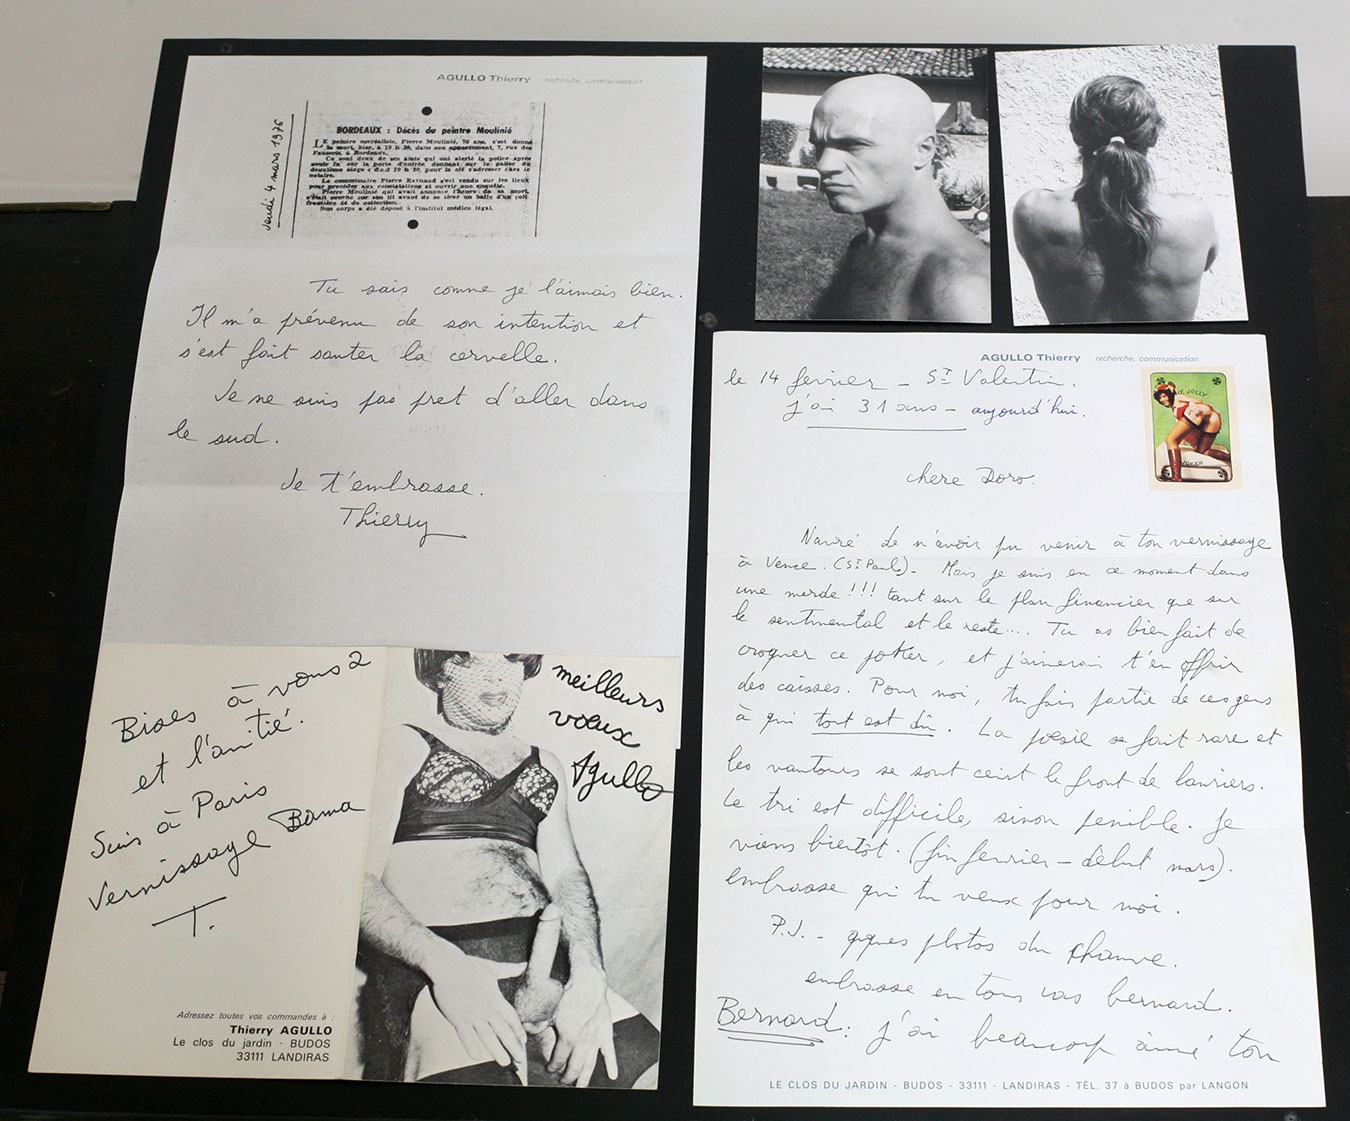 AGULLO Thierry recherche, communication
jeudi 4 mars 1976
BORDEAUX : Décès du peintre Moulinié
LE peintre surréaliste, Pierre Moulinié, 76 ans, s'est donné
la mort, hier, à 19 h 30, dans son appartement, 7, rue des
Faussets, à Bordeaux.
Ce sont deux de ses amis qui ont alerté la police après
avoir lu sur la porte d'entrée donnant sur le palier du
deuxième étage « d.c.d 19 h 30, pour la clé s'adresser chez le
notaire.
Le commissaire Pierre Barnaud s'est rendu sur les lieux
pour procéder aux constatations et ouvrir une enquête.
Pierre Moulinié qui avait annoncé l'heure de sa mort,
s'était couché sur son lit avant de se tirer un balle d'un colt
frontière de collection.
Son corps a été déposé à l'institut médico légal.
Tu sais comme je l'aimais bien.
Il m'a prévenu de son intention et
s'est fait sauter la cervelle.
Je ne suis pas pret d'aller dans
le sud.
Je t'embrasse.
Thierry
Bises à vous 2
et l'amitié.
Suis à Paris
Vernissage Bama
T.
Adressez toutes vos commandes à :
Thierry AGULLO
Le clos du jardin - BUDOS
33111 LANDIRAS
meilleurs
vœux
Agullo
AGULLO Thierry recherche, communication
le 14 fevrier - St Valentin.
j'ai 31 ans - aujourd'hui.
JOLLY
JOKER
chere Doro.
Navré de n'avoir pu venir à ton vernissage
à Vence. (St Paul). Mais je suis en ce moment dans
une merde !!! tant sur le plan financier que sur
le sentimental et le reste.... Tu as bien fait de
croquer ce joker, et j'aimerais t'en offrir
des caisses. Pour moi, tu fais partie de ces gens
à qui tout est dû. La poésie se fait rare et
les vautours se sont ceint le front de lauriers.
Le tri est difficile, sinon penible. Je
viens bientôt. (fin fevrier - début mars).
embrasse qui tu veux pour moi.
P.J. - qques photos du chauve.
embrasse en tous cas bernard.
Bernard : j'ai beaucoup aimé ton
LE CLOS DU JARDIN - BUDOS - 33111 - LANDIRAS - TÉL. 37 à BUDOS par LANGON